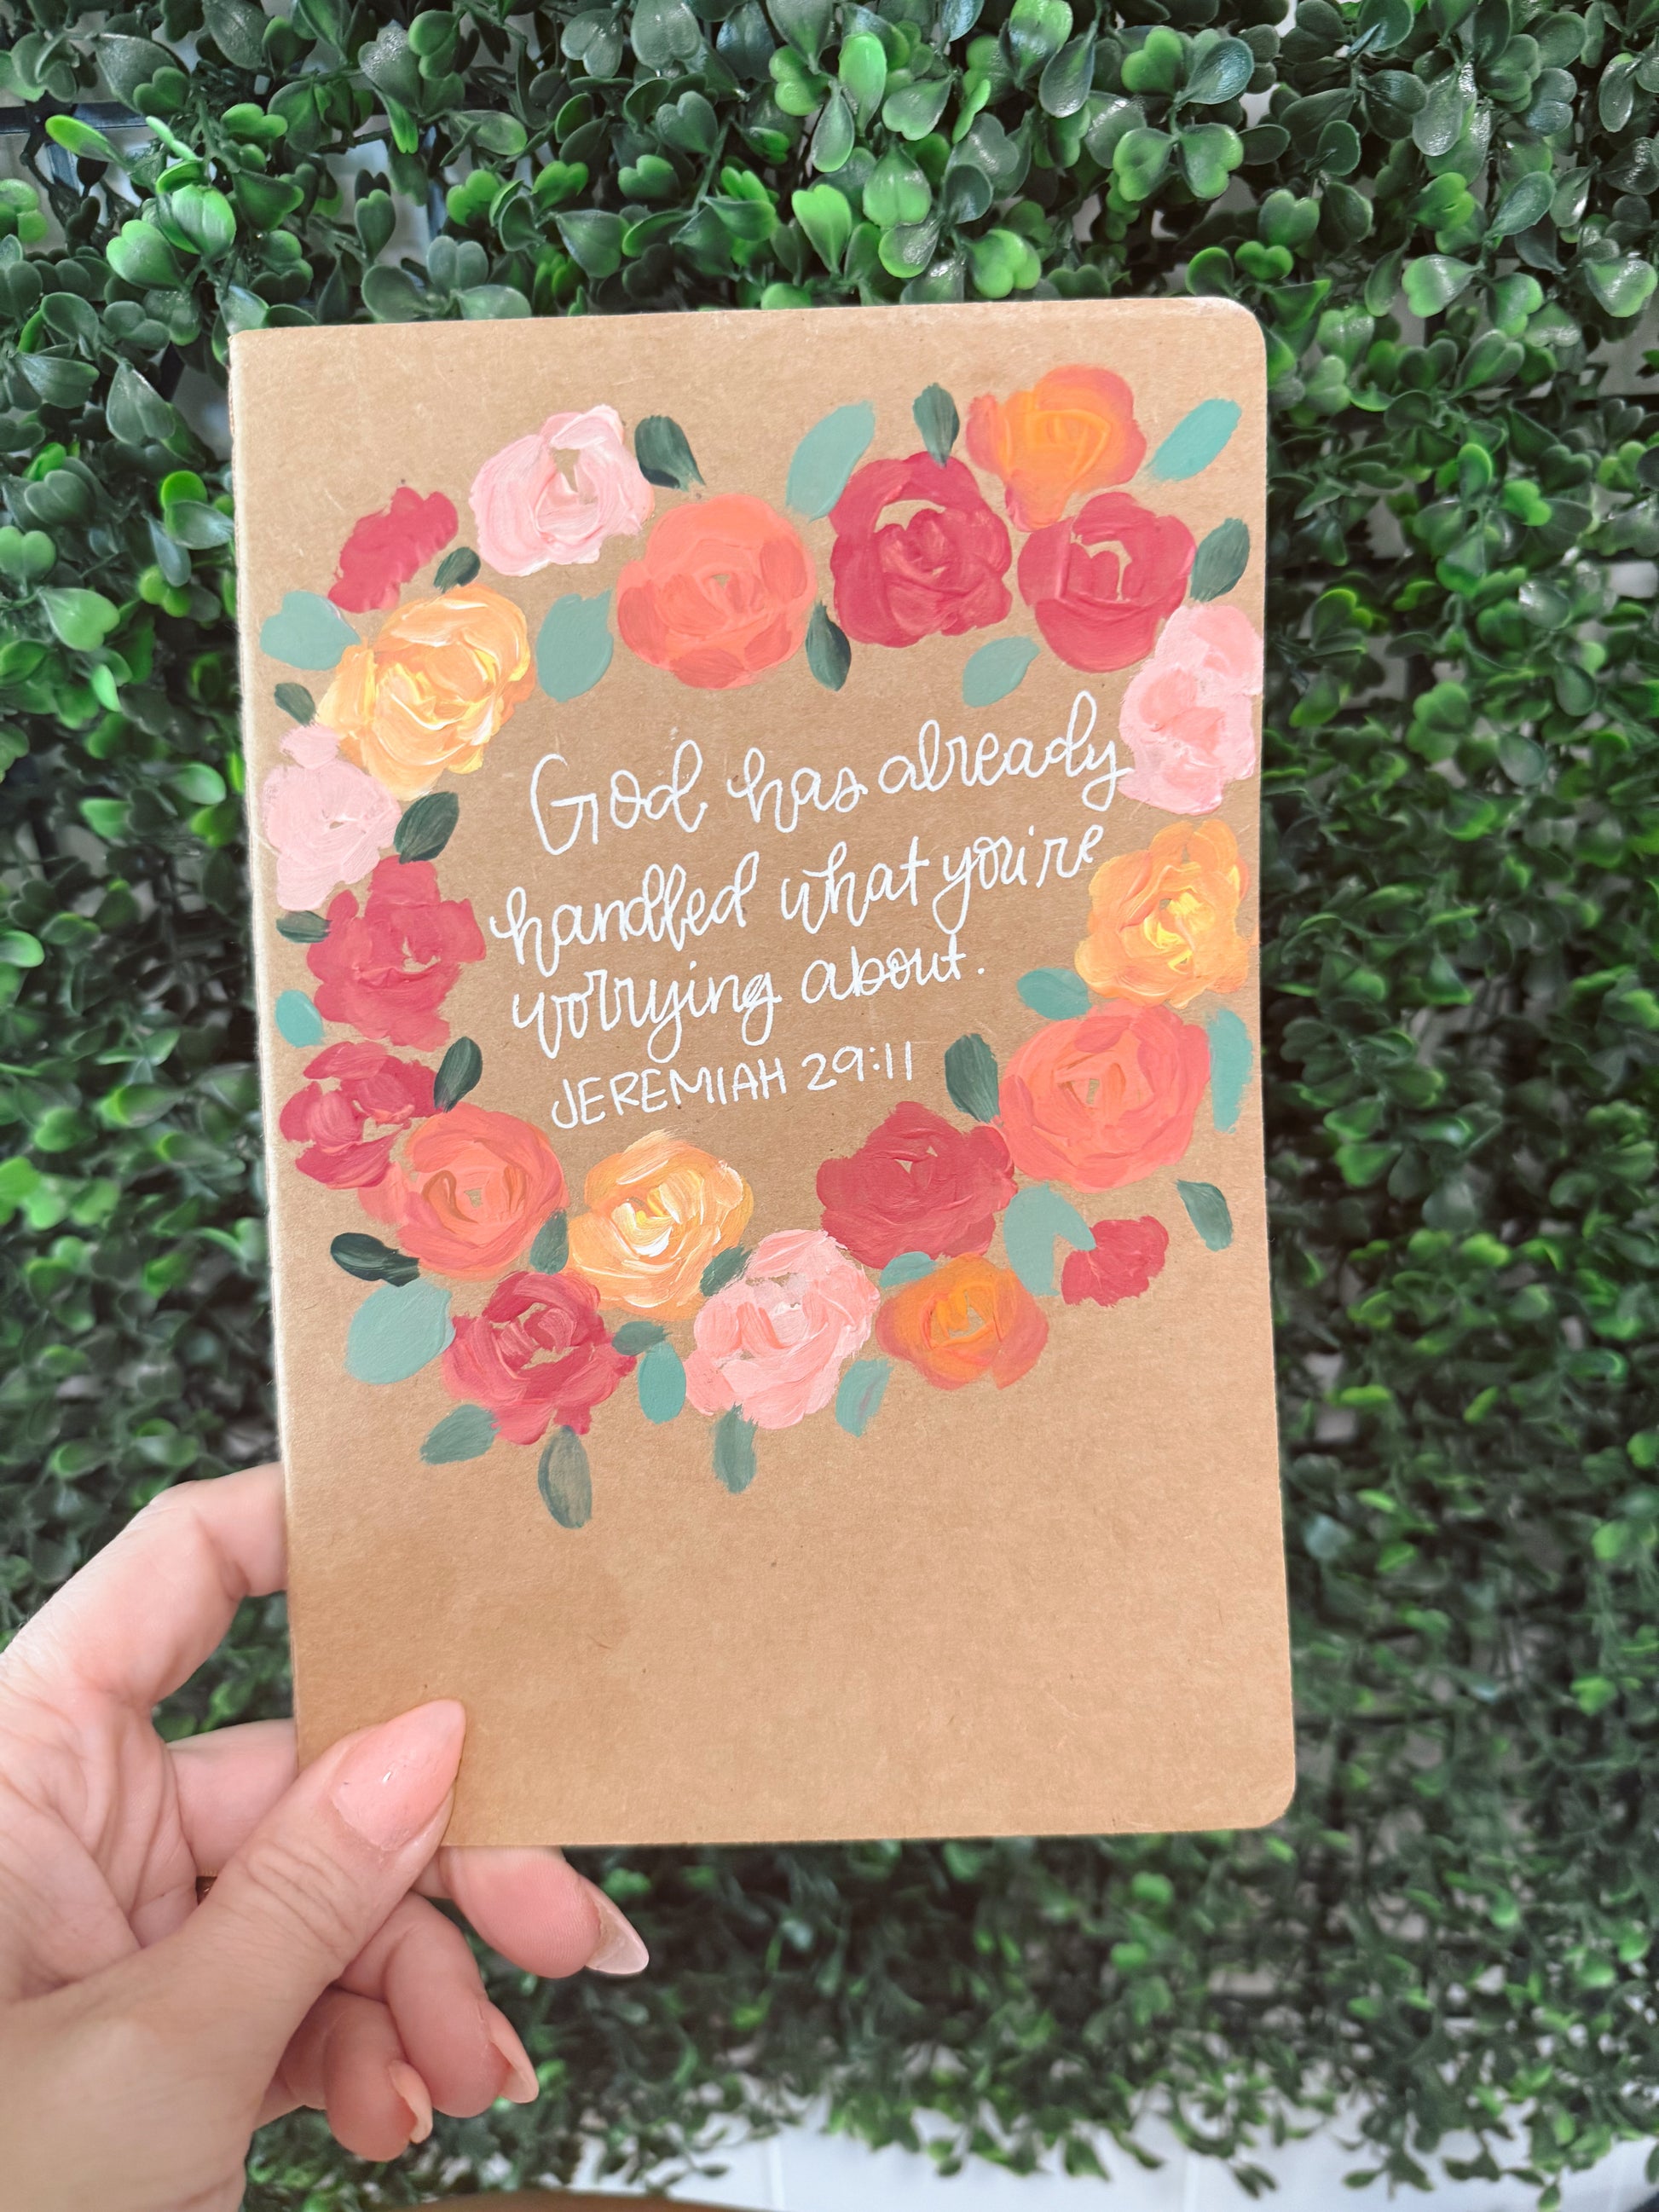 God has already
handled what you're
worrying about.
JEREMIAH 29:11